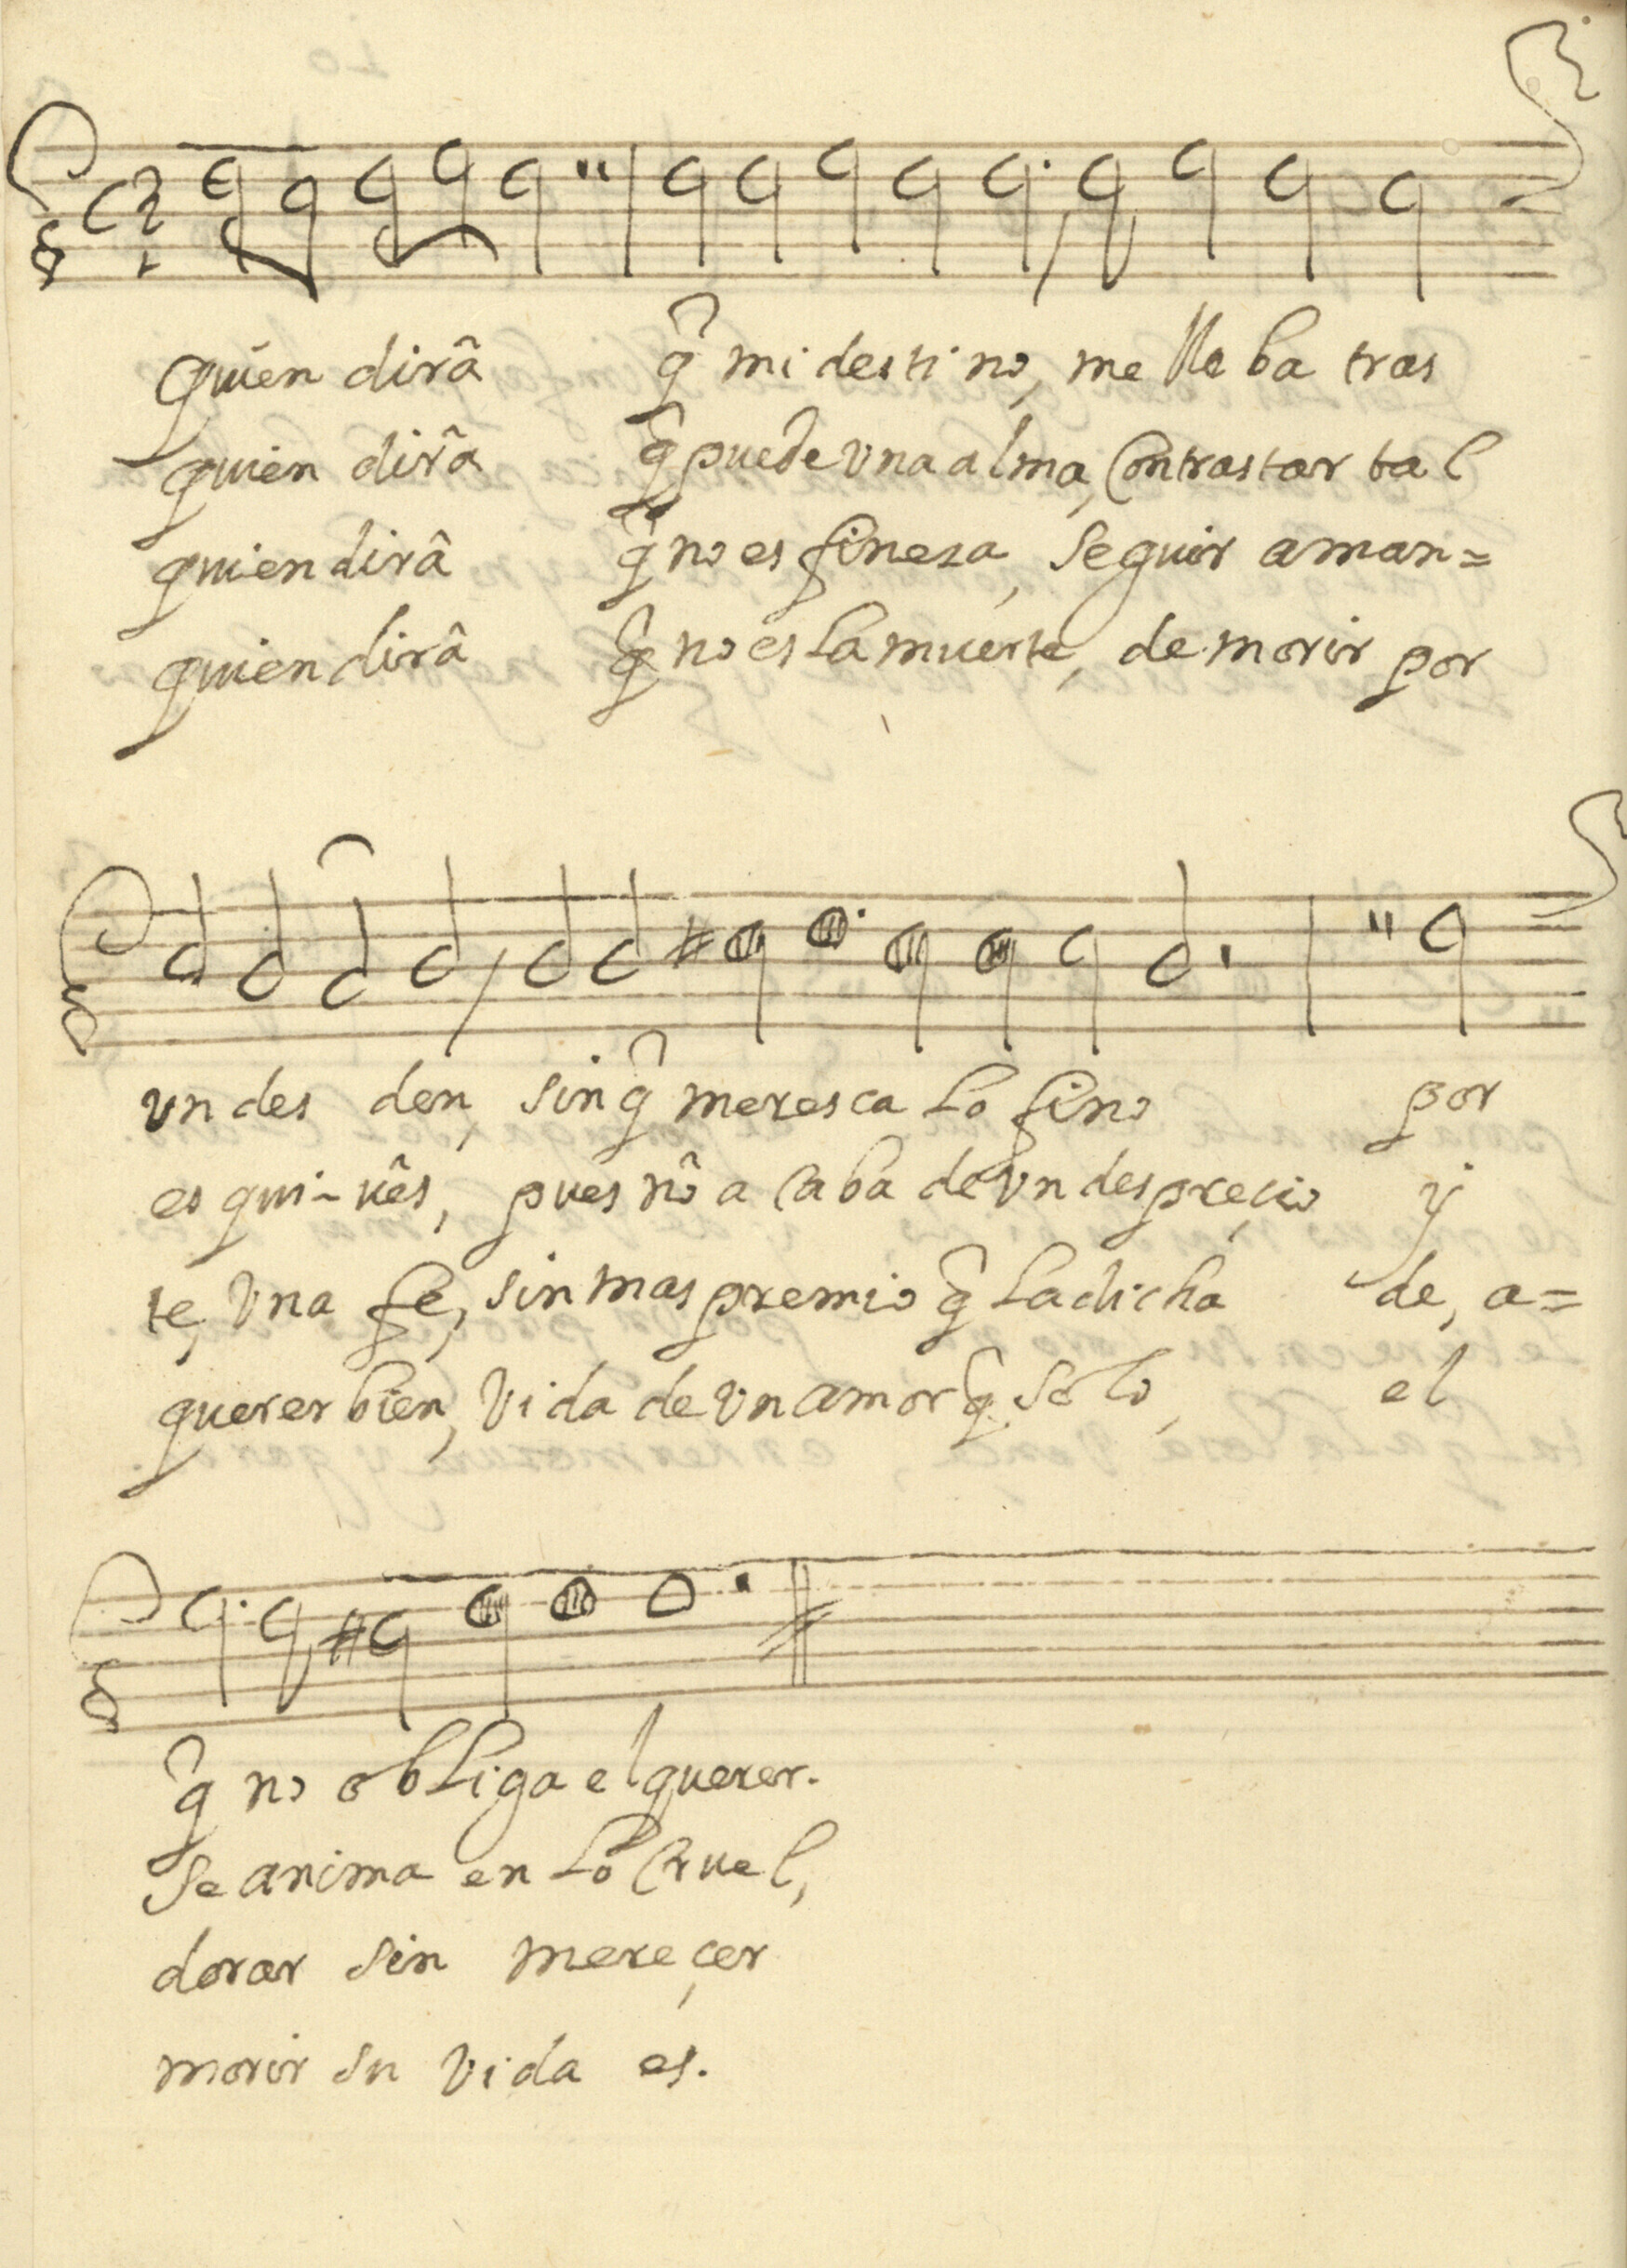 Quien dirâ q̂ mi destino, me lleba tras
quien dirâ q̂ puede vna alma, Contrastar tal
quien dirâ q̂ no es fineza, seguir aman=
quien dirâ q̂ no es la muerte, de morir por
vn des den, sin q̂ meresca lo fino por
es qui-vês, pues nô a caba de vn despreçio y
te, vna fe, sin mas premio q̂ la dicha de, a=
querer bien, vida de vn amor q̂ solo, el
q̂ no obliga el querer.
se anima en lo Cruel,
dorar sin mereçer
morir su vida es.